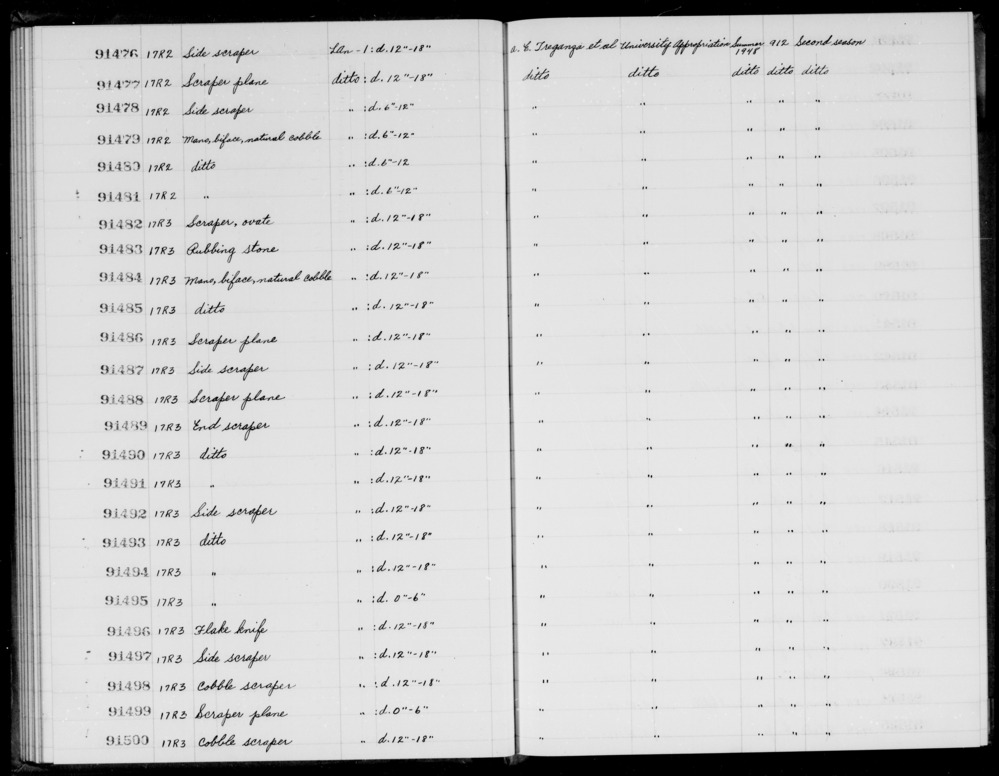 91476 17R2 Side scraper LAn-1:d.12"-18" A. E. Treganza et al University Appropriation Summer 1948 912 Second season
91477 17R2 Scraper plane ditto:d.12"-18" ditto ditto ditto ditto ditto
91478 17R2 Side scraper " :d.6"-12" " " " " "
91479 17R2 Mano, biface, natural cobble " :d.6"-12" " " " " "
91480 17R2 ditto " :d.6"-12 " " " " "
91481 17R2 " " :d.6"-12" " " " " "
91482 17R3 Scraper, ovate " :d.12"-18" " " " " "
91483 17R3 Rubbing stone " :d.12"-18" " " " " "
91484 17R3 Mano, biface, natural cobble " :d.12"-18" " " " " "
91485 17R3 ditto " :d.12"-18" " " " " "
91486 17R3 Scraper plane " :d.12"-18" " " " " "
91487 17R3 Side scraper " :d.12"-18" " " " " "
91488 17R3 Scraper plane " :d.12"-18" " " " " "
91489 17R3 End scraper " :d.12"-18" " " " " "
91490 17R3 ditto " :d.12"-18" " " " " "
91491 17R3 " " :d.12"-18" " " " " "
91492 17R3 Side scraper " :d.12"-18" " " " " "
91493 17R3 ditto " :d.12"-18" " " " " "
91494 17R3 " " :d.12"-18" " " " " "
91495 17R3 " " :d. 0"-6" " " " " "
91496 17R3 Flake knife " :d.12"-18" " " " " "
91497 17R3 Side scraper " :d.12"-18" " " " " "
91498 17R3 Cobble scraper " :d.12"-18" " " " " "
91499 17R3 Scraper plane " :d.0"-6" " " " " "
91500 17R3 Cobble scraper " d.12"-18" " " " " "